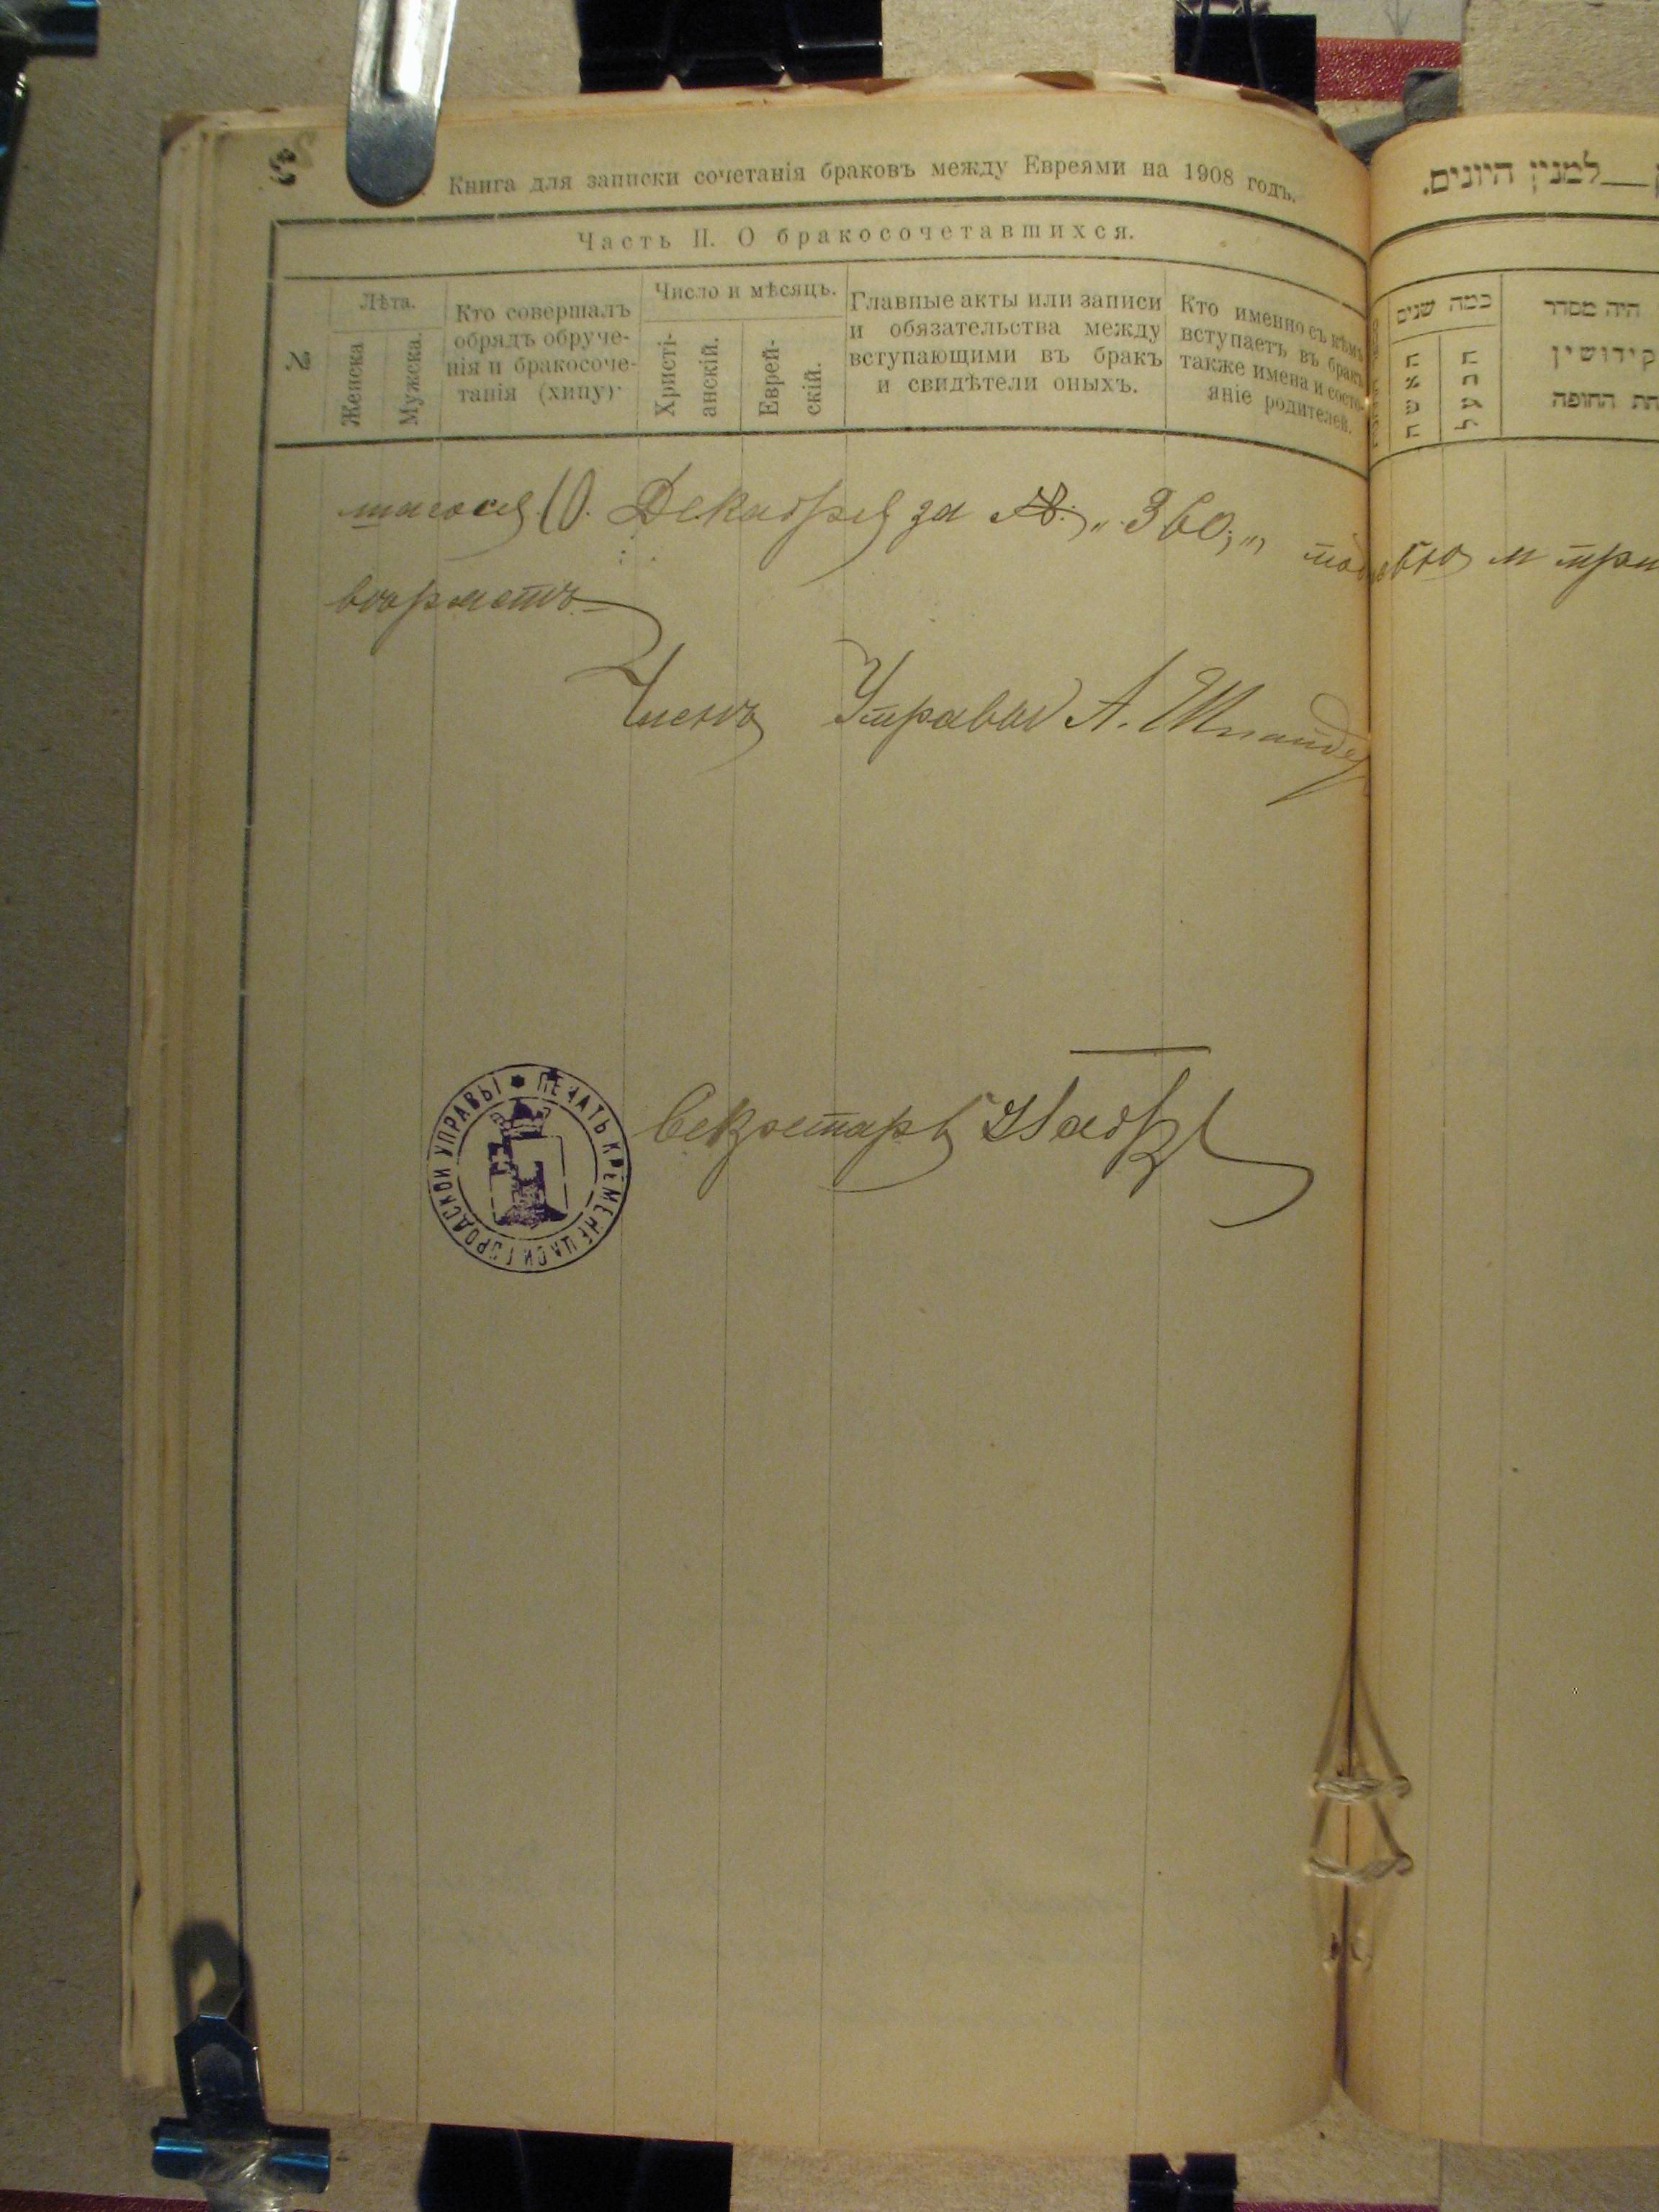 Книга для записки сочетанія браковъ между Евреями на 1908 годъ.
Часть II. О бракосочетавшихся.
№
Лѣта.
Женска
Мужска.
Кто совершалъ
обрядъ обруче-
нія и бракосоче-
танія (хипу)
Число и мѣсяцъ.
Христі-
анскій.
Еврей-
скій.
Главные акты или записи
и обязательства между
вступающими въ бракъ
и свидѣтели оныхъ.
Кто именно съ кѣмъ
вступаетъ въ бракъ
также имена и состо-
яніе родителей.
10. Декабря за №. "360,"
Членъ Управы А.
Секретарь
ПЕЧАТЬ КРЕМЕНЕЦКОЙ ГОРОДСКОЙ УПРАВЫ
למנין היונים.
כמה שנים
האשה
הבעל
היה מסדר
קידושין
החופה